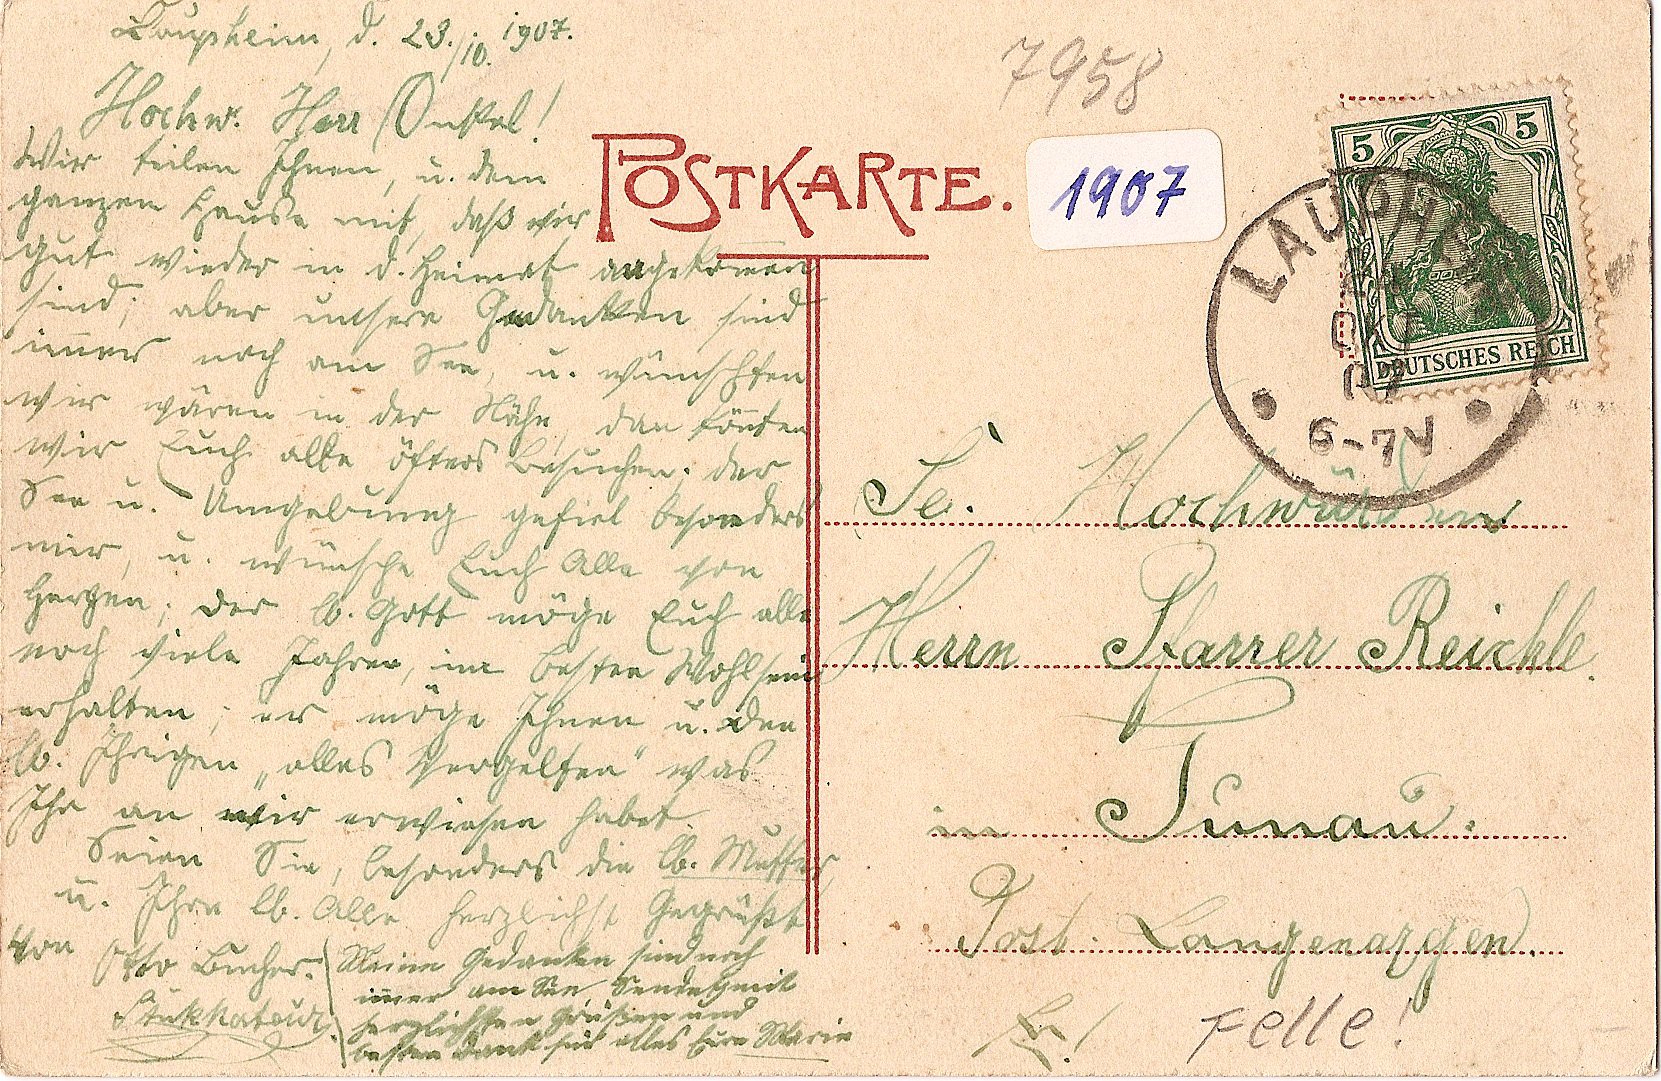 Laupheim, d. 23./10. 1907.
Hochw. Herr Onkel!
Wir teilen Ihnen, u. dem
ganzen Hause mit, daß wir
gut wieder in d. Heimat angekommen
sind; aber unsere Gedanken sind
immer noch am See, u. wünschten
wir wären in der Nähe, dan könten
wir Euch alle öfters besuchen; der
See u. Umgebung gefiel besonders
mir, u. wünsche Euch Alle von
Herzen; der lb. Gott möge Euch alle
noch viele Jahre, im besten Wohlsein
erhalten; er möge Ihnen u. den
lb. Ihrigen „alles Vergelten" was
Ihr an mir erwiesen habet.
Seien Sie, besonders die lb. Mutter,
u. Ihre lb. Alle herzlichst Gegrüßt
von Otto Bucher.
Stukkateur.
Meine Gedanken sind noch
immer am See. Sendet mit
herzlichsten Grüßen und
besten Dank für alles Eure Marie
7958
POSTKARTE.
1907
5 5
DEUTSCHES REICH
LAUPHEIM
OKT
07
6-7V
Se. Hochwürden
Herrn Pfarrer Reichle.
in Tunau.
Post Langenargen.
Felle!